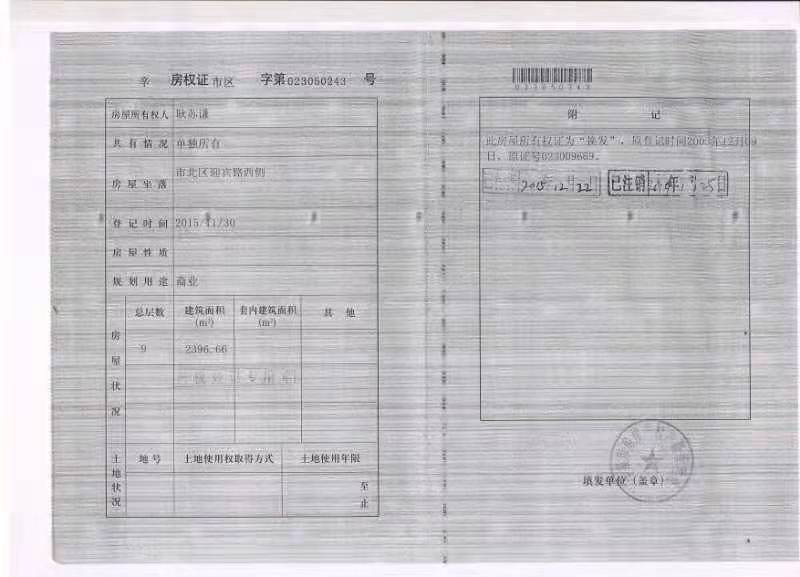 辛 房权证 市区 字第 023050243 号
房屋所有权人 耿苏谦
共有情况 单独所有
房屋坐落 市北区迎宾路西侧
登记时间 2015/11/30
房屋性质
规划用途 商业
房屋状况
总层数 建筑面积(m²) 套内建筑面积(m²) 其他
9 2396.66
土地状况
地号 土地使用权取得方式 土地使用年限
至
止
023050243
附 记
此房屋所有权证为“换发”，原登记时间200 年12月09
日，原证号023009669。
2015.12.22 已注销 年 月25日
填发单位（盖章）